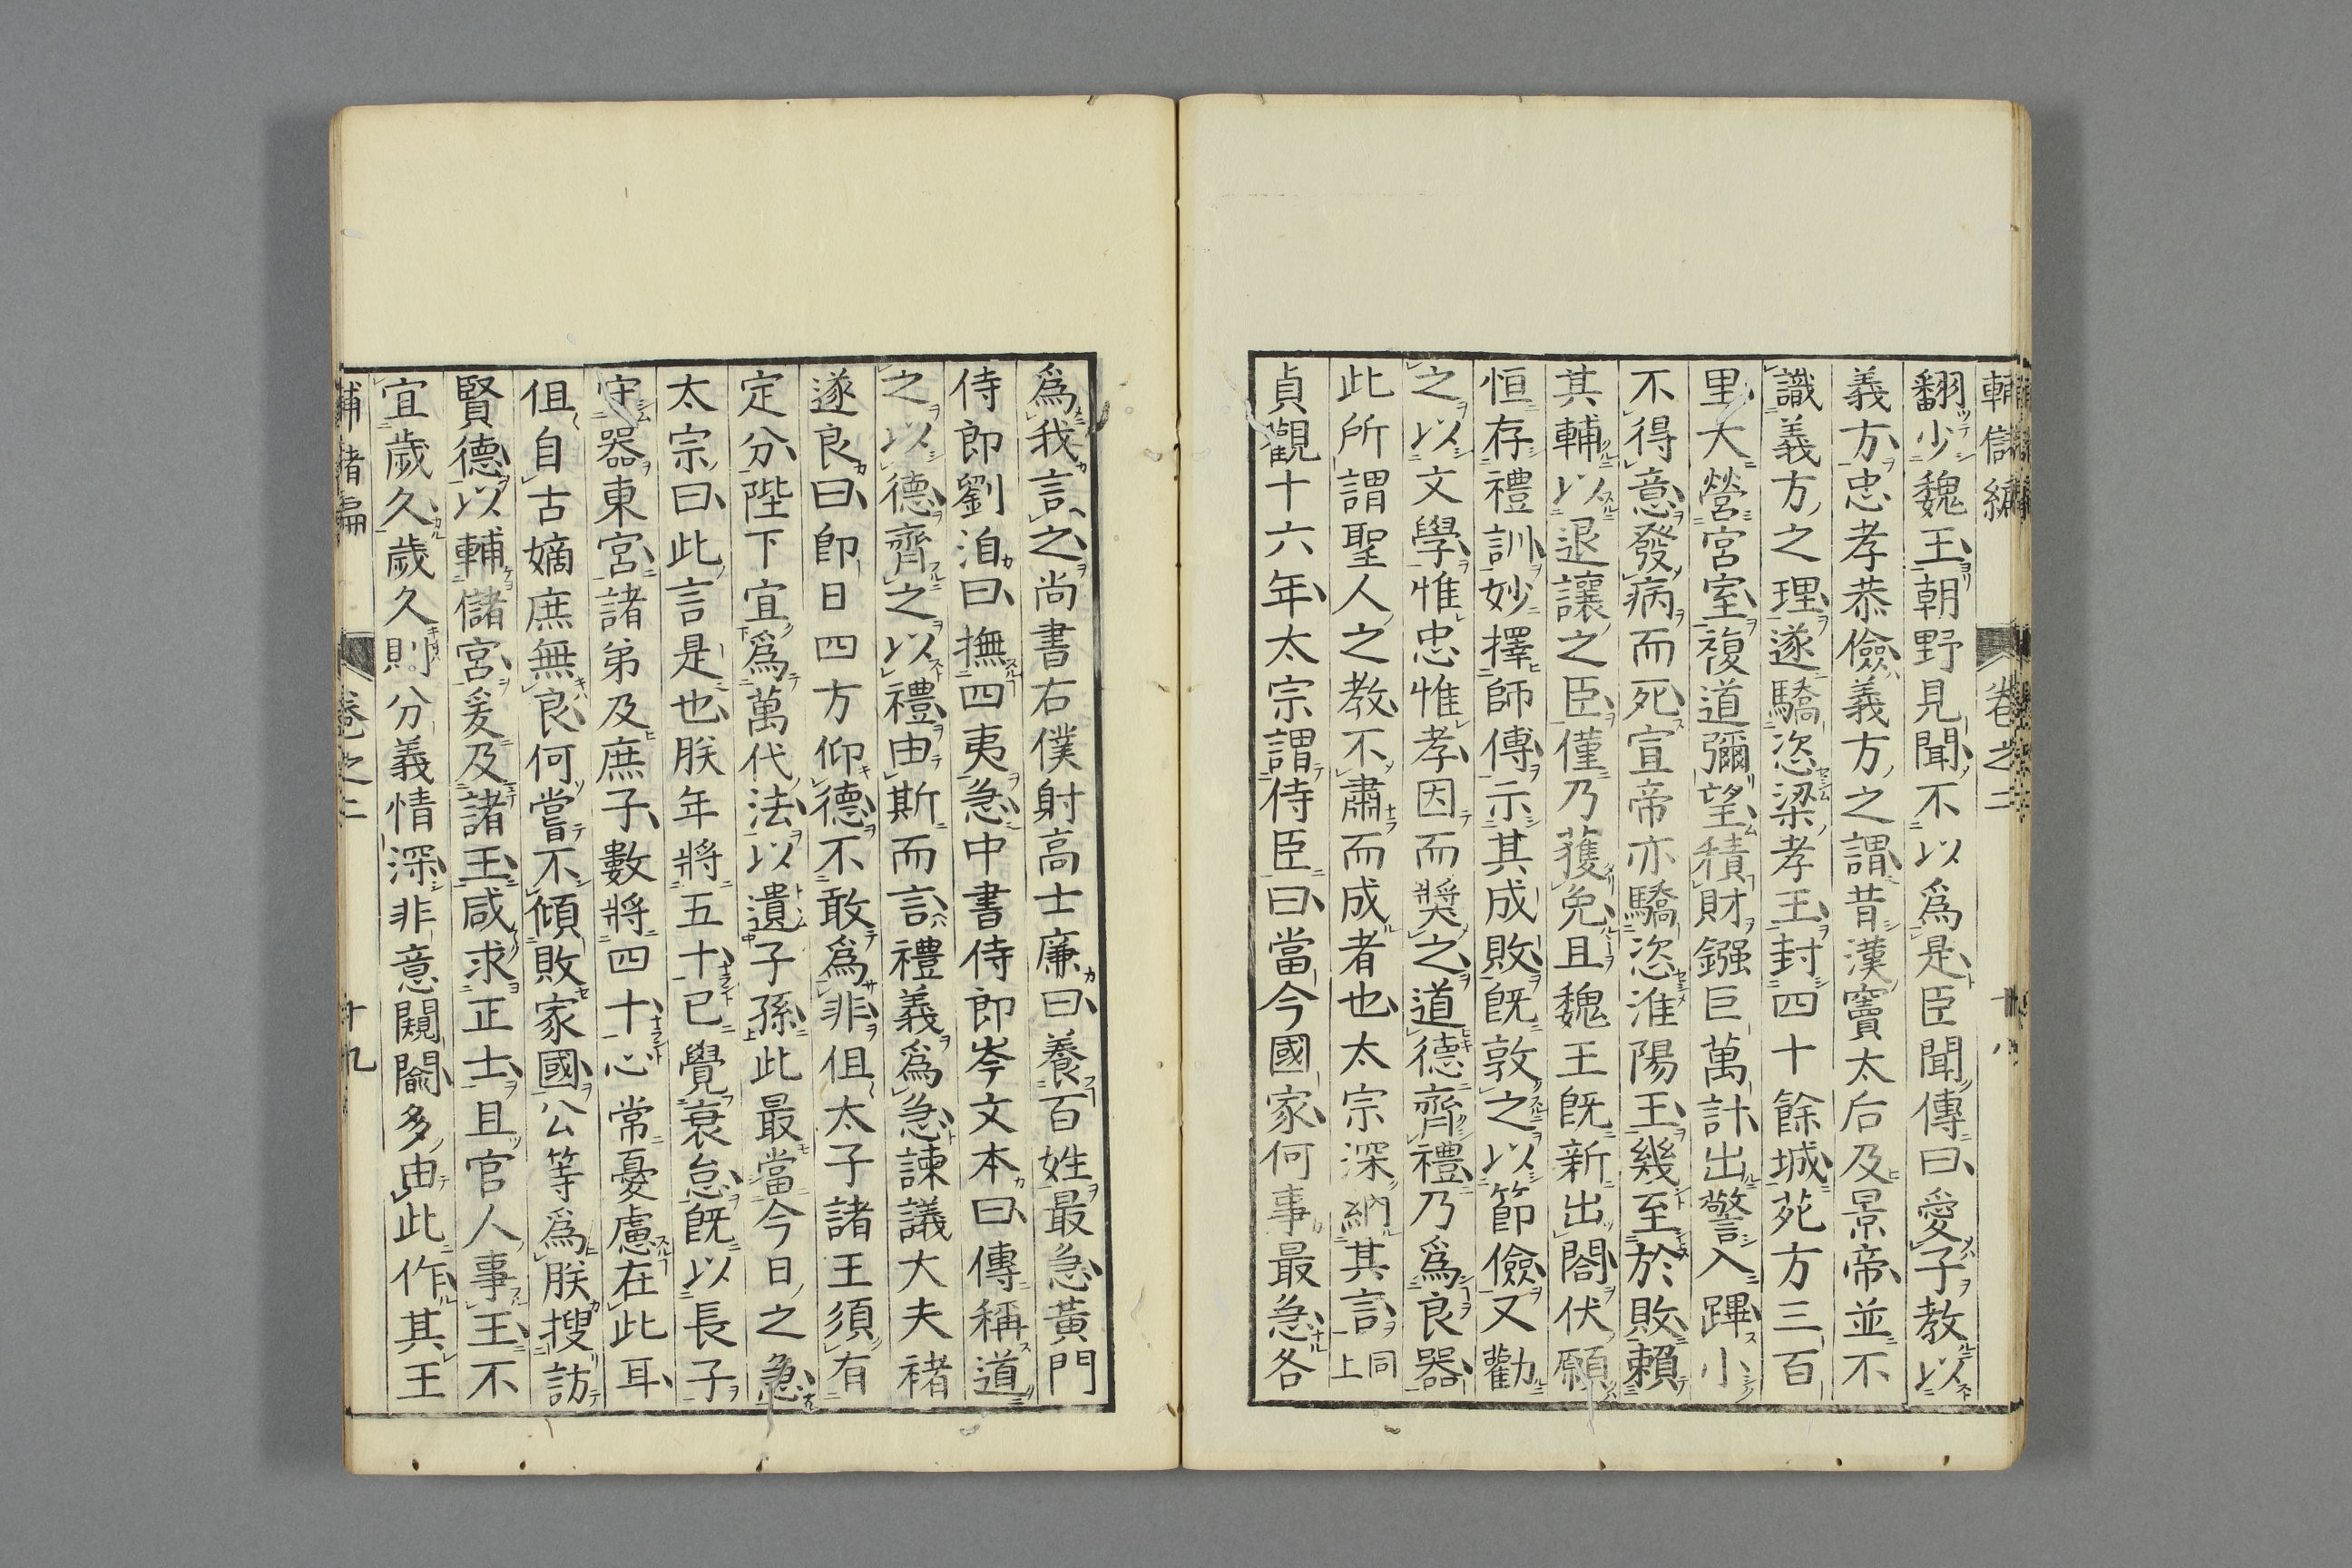 輔儲編 卷之二 十八
翻少魏王朝野見聞不以爲是臣聞傳曰愛子教以
義方忠孝恭儉義方之謂昔漢竇太后及景帝並不
識義方之理遂驕恣梁孝王封四十餘城苑方三百
里大營宮室複道彌望積財鏹巨萬計出警入蹕小
不得意發病而死宣帝亦驕恣淮陽王幾至於敗賴
其輔以退讓之臣僅乃獲免且魏王既新出閤伏願
恒存禮訓妙擇師傅示其成敗既敦之以節儉又勸
之以文學惟忠惟孝因而奬之道德齊禮乃爲良器
此所謂聖人之教不肅而成者也太宗深納其言同上
貞觀十六年太宗謂侍臣曰當今國家何事最急各
爲我言之尚書右僕射高士廉曰養百姓最急黃門
侍郎劉洎曰撫四夷急中書侍郎岑文本曰傳稱道
之以德齊之以禮由斯而言禮義爲急諫議大夫褚
遂良曰卽日四方仰德不敢爲非但太子諸王須有
定分陛下宜爲萬代法以遺子孫此最當今日之急
太宗曰此言是也朕年將五十已覺衰怠既以長子
守器東宮諸弟及庶子數將四十心常憂慮在此耳
但自古嫡庶無良何嘗不傾敗家國公等爲朕搜訪
賢德以輔儲宮爰及諸王咸求正士且官人事王不
宜歲久歲久則分義情深非意闚闟多由此作其王
輔儲編 卷之二 十九